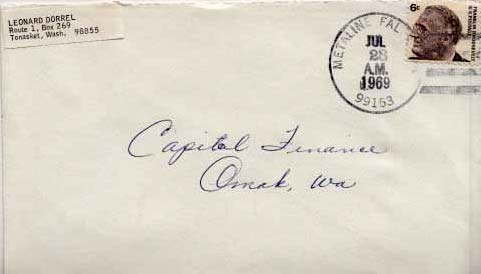 LEONARD DORREL
Route 1, Box 269
Tonasket, Wash. 98855
6¢
METALINE FAL
JUL
28
A.M.
1969
99153
Capitol Finance
Omak, Wa